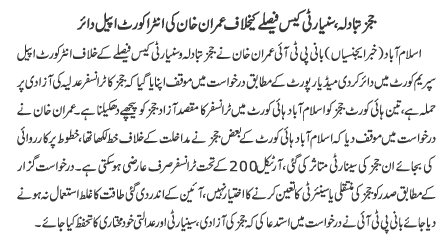 ججز تبادلہ، سنیارٹی کیس فیصلے کیخلاف عمران خان کی انٹرا کورٹ اپیل دائر
اسلام آباد (خبر ایجنسیاں) بانی پی ٹی آئی عمران خان نے ججز تبادلہ و سنیارٹی کیس فیصلے کے خلاف انٹر کورٹ اپیل
سپریم کورٹ میں دائر کردی میڈیا رپورٹ کے مطابق درخواست میں موقف اپنایا گیا کہ ججز کا ٹرانسفر عدلیہ کی آزادی پر
حملہ ہے، تین ہائی کورٹ ججز کو اسلام آباد ہائی کورٹ میں ٹرانسفر کا مقصد آزاد ججز کو پیچھے دھکیلنا ہے۔ عمران خان نے
درخواست میں موقف دیا کہ اسلام آباد ہائی کورٹ کے بعض ججز نے مداخلت کے خلاف خط لکھا تھا، خطوط پر کارروائی
کی بجائے ان ججز کی سینارٹی متاثر کی گئی، آرٹیکل 200 کے تحت ٹرانسفر صرف عارضی ہوسکتی ہے۔ درخواست گزار
کے مطابق صدر کو ججز کی منتقلی یا سینئرٹی کا تعین کرنے کا اختیار نہیں، آئین کے اندر دی گئی طاقت کا غلط استعمال نہ ہونے
دیا جائے بانی پی ٹی آئی نے درخواست میں استدعا کی کہ ججز کی آزادی، سینیارٹی اور عدالتی خودمختاری کا تحفظ کیا جائے۔